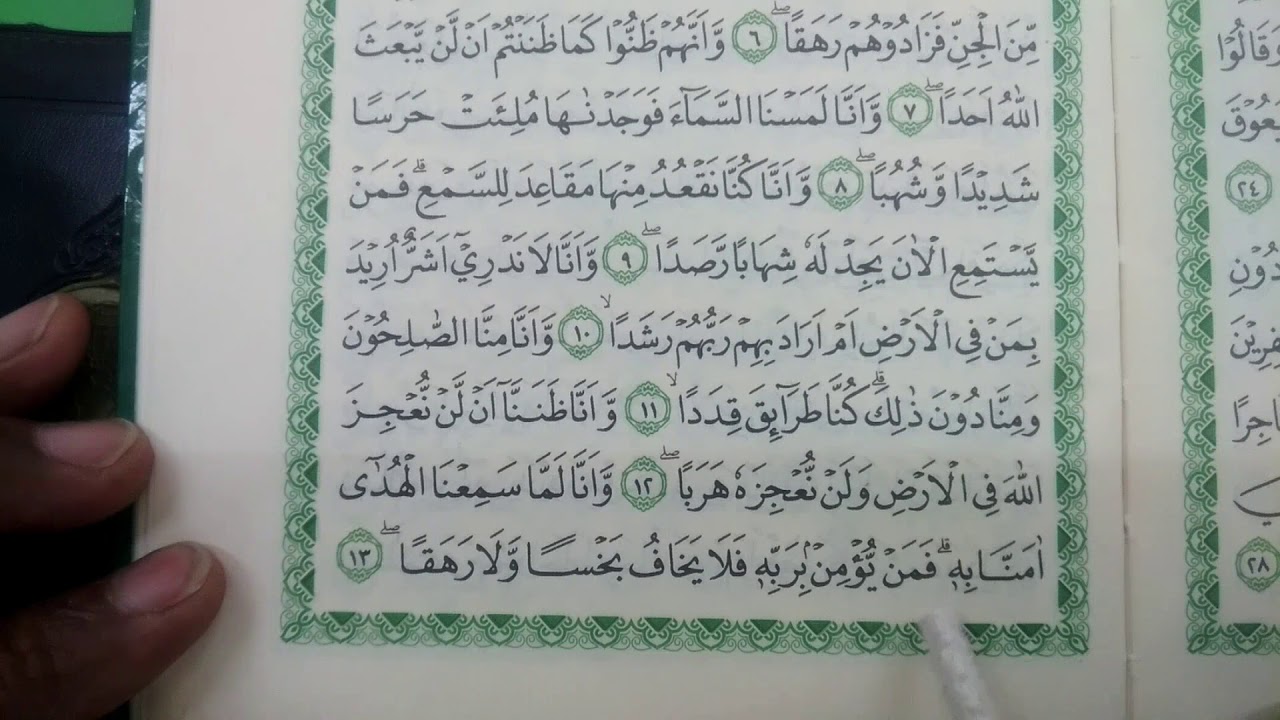 مِّنَ الْجِنِّ فَزَادُوْهُمْ رَهَقًاۖ ٦ وَّاَنَّهُمْ ظَنُّوْا كَمَا ظَنَنْتُمْ اَنْ لَّنْ يَّبْعَثَ
اللّٰهُ اَحَدًاۖ ٧ وَّاَنَّا لَمَسْنَا السَّمَاۤءَ فَوَجَدْنٰهَا مُلِئَتْ حَرَسًا
شَدِيْدًا وَّشُهُبًاۖ ٨ وَّاَنَّا كُنَّا نَقْعُدُ مِنْهَا مَقَاعِدَ لِلسَّمْعِۗ فَمَنْ
يَّسْتَمِعِ الْاٰنَ يَجِدْ لَهٗ شِهَابًا رَّصَدًاۖ ٩ وَّاَنَّا لَا نَدْرِيْٓ اَشَرٌّ اُرِيْدَ
بِمَنْ فِى الْاَرْضِ اَمْ اَرَادَ بِهِمْ رَبُّهُمْ رَشَدًاۙ ١٠ وَّاَنَّا مِنَّا الصّٰلِحُوْنَ
وَمِنَّا دُوْنَ ذٰلِكَۗ كُنَّا طَرَاۤىِٕقَ قِدَدًاۙ ١١ وَّاَنَّا ظَنَنَّآ اَنْ لَّنْ نُّعْجِزَ
اللّٰهَ فِى الْاَرْضِ وَلَنْ نُّعْجِزَهٗ هَرَبًاۖ ١٢ وَّاَنَّا لَمَّا سَمِعْنَا الْهُدٰٓى
اٰمَنَّا بِهٖۗ فَمَنْ يُّؤْمِنْۢ بِرَبِّهٖ فَلَا يَخَافُ بَخْسًا وَّلَا رَهَقًاۖ ١٣
٢٤
٢٨